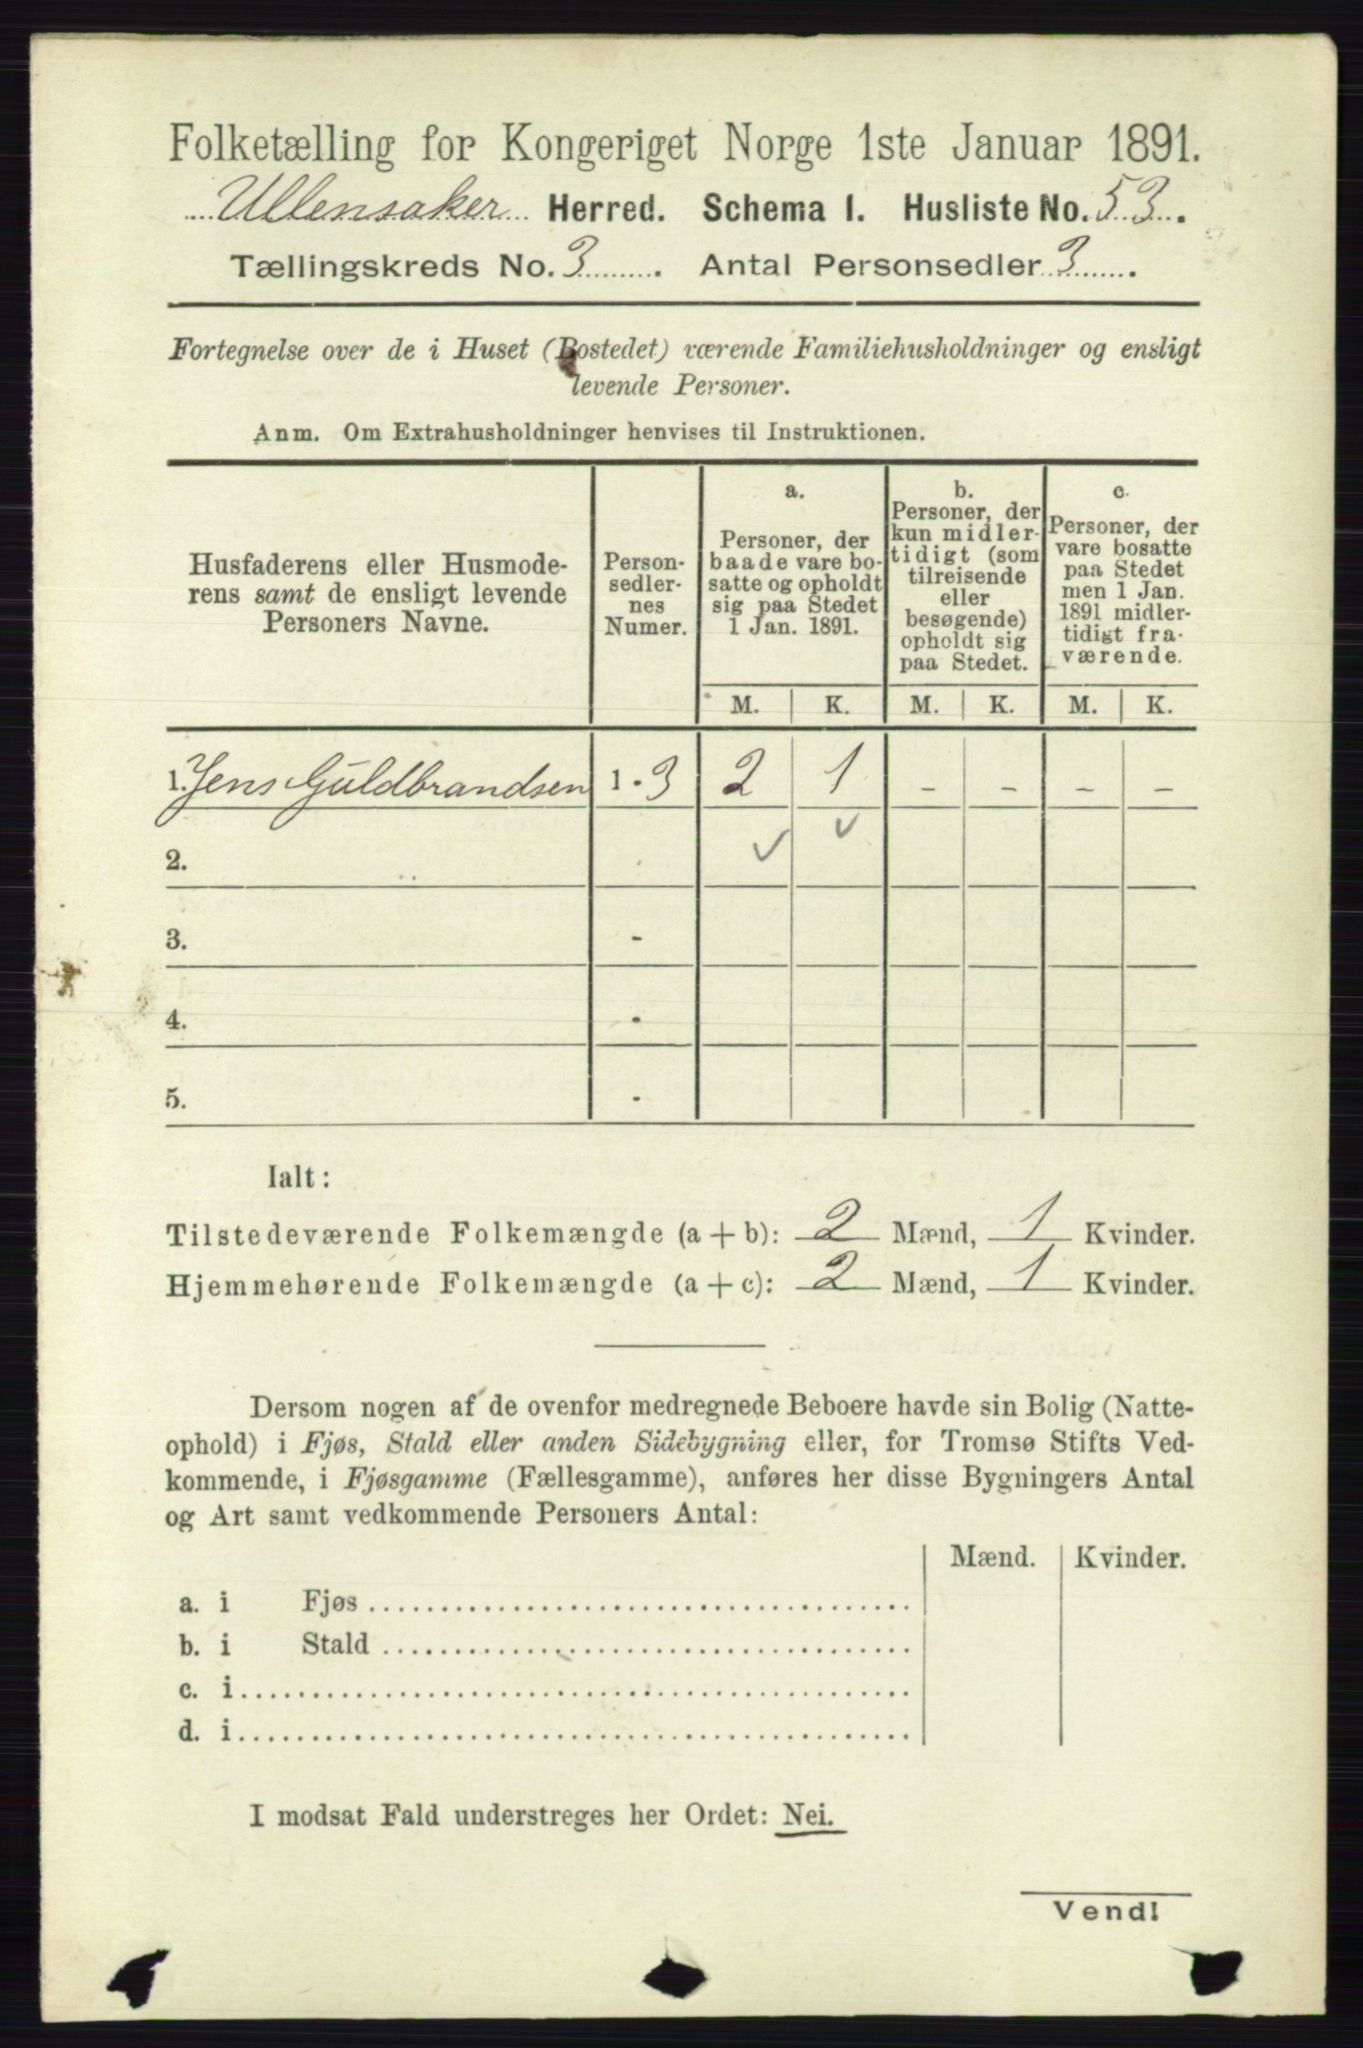 Folketælling for Kongeriget Norge 1ste Januar 1891.
Ullensaker Herred. Schema I. Husliste No. 53.
Tællingskreds No. 3. Antal Personsedler 3.
Fortegnelse over de i Huset (Bostedet) værende Familiehusholdninger og ensligt
levende Personer.
Anm. Om Extrahusholdninger henvises til Instruktionen.
Husfaderens eller Husmode-
rens samt de ensligt levende
Personers Navne.
Person-
sedler-
nes
Numer.
a.
Personer, der
baade vare bo-
satte og opholdt
sig paa Stedet
1 Jan. 1891.
b.
Personer, der
kun midler-
tidigt (som
tilreisende
eller
besøgende)
opholdt sig
paa Stedet.
c.
Personer, der
vare bosatte
paa Stedet
men 1 Jan.
1891 midler-
tidigt fra-
værende.
M. K. M. K. M. K.
1. Jens Guldbrandsen 1-3 2 1 - - - -
2.
3. -
4. -
5. -
Ialt:
Tilstedeværende Folkemængde (a + b): 2 Mænd, 1 Kvinder.
Hjemmehørende Folkemængde (a + c): 2 Mænd, 1 Kvinder.
Dersom nogen af de ovenfor medregnede Beboere havde sin Bolig (Natte-
ophold) i Fjøs, Stald eller anden Sidebygning eller, for Tromsø Stifts Ved-
kommende, i Fjøsgamme (Fællesgamme), anføres her disse Bygningers Antal
og Art samt vedkommende Personers Antal:
Mænd. Kvinder.
a. i Fjøs
b. i Stald
c. i
d. i
I modsat Fald understreges her Ordet: Nei.
Vend!